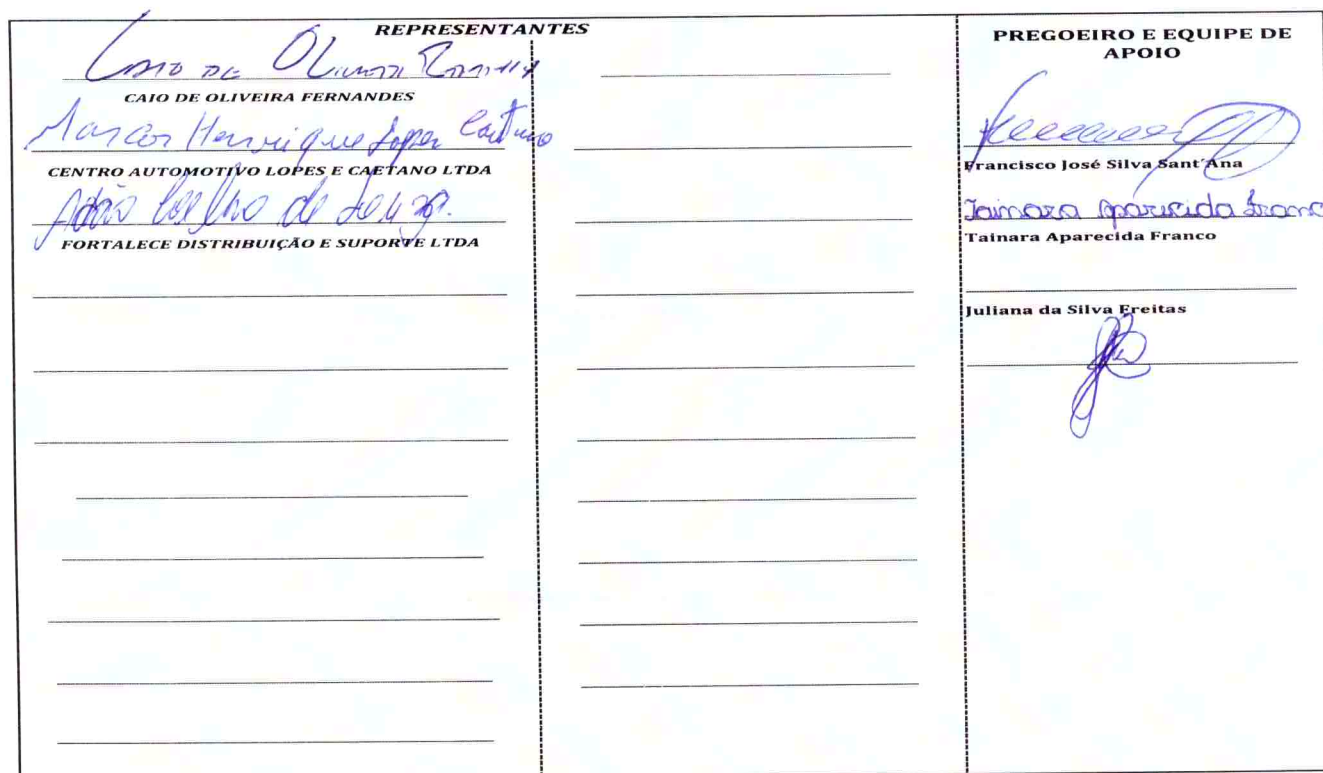 REPRESENTANTES
Caio de Oliveira
CAIO DE OLIVEIRA FERNANDES
Marcos Henrique Lopes Caetano
CENTRO AUTOMOTIVO LOPES E CAETANO LTDA
Adão Coelho de Souza.
FORTALECE DISTRIBUIÇÃO E SUPORTE LTDA
PREGOEIRO E EQUIPE DE
APOIO
Francisco José Silva Sant´Ana
Tainara Aparecida Franc
Tainara Aparecida Franco
Juliana da Silva Freitas